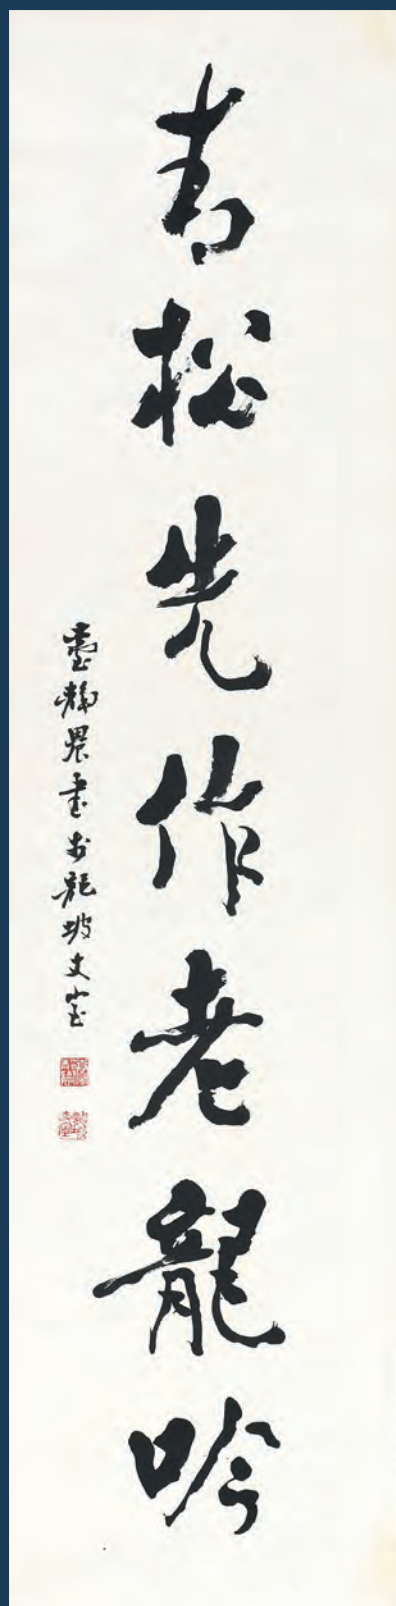 青松先作老龍吟
臺靜農書於龍坡丈室